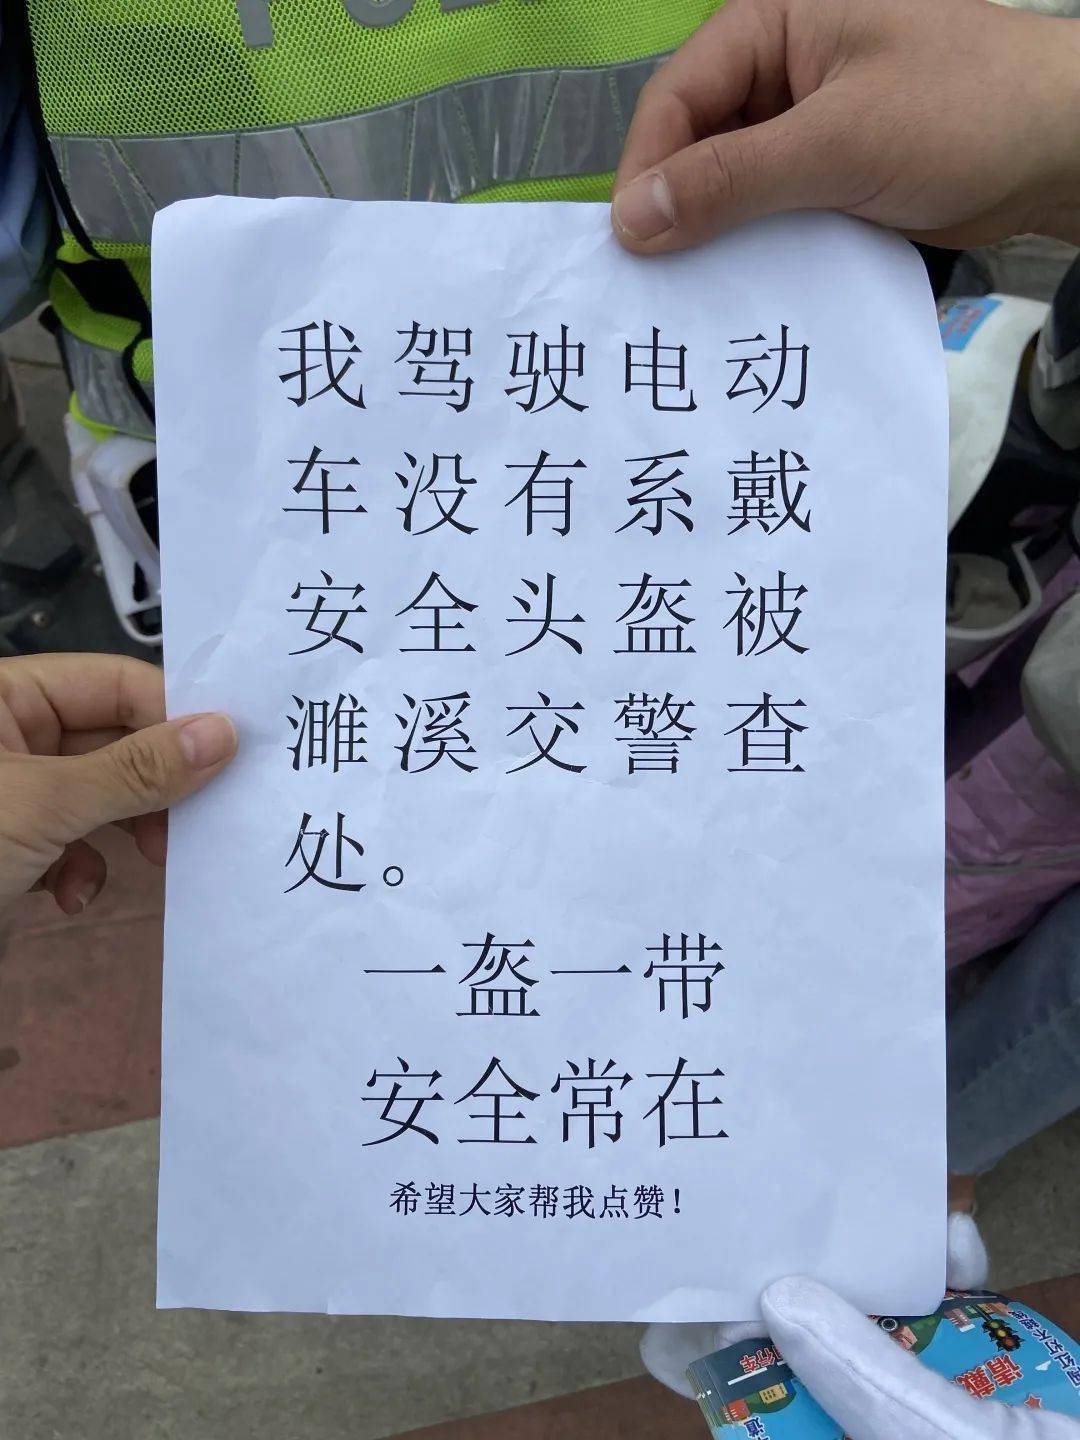 我驾驶电动
车没有系戴
安全头盔被
濉溪交警查
处。
一盔一带
安全常在
希望大家帮我点赞！
请戴